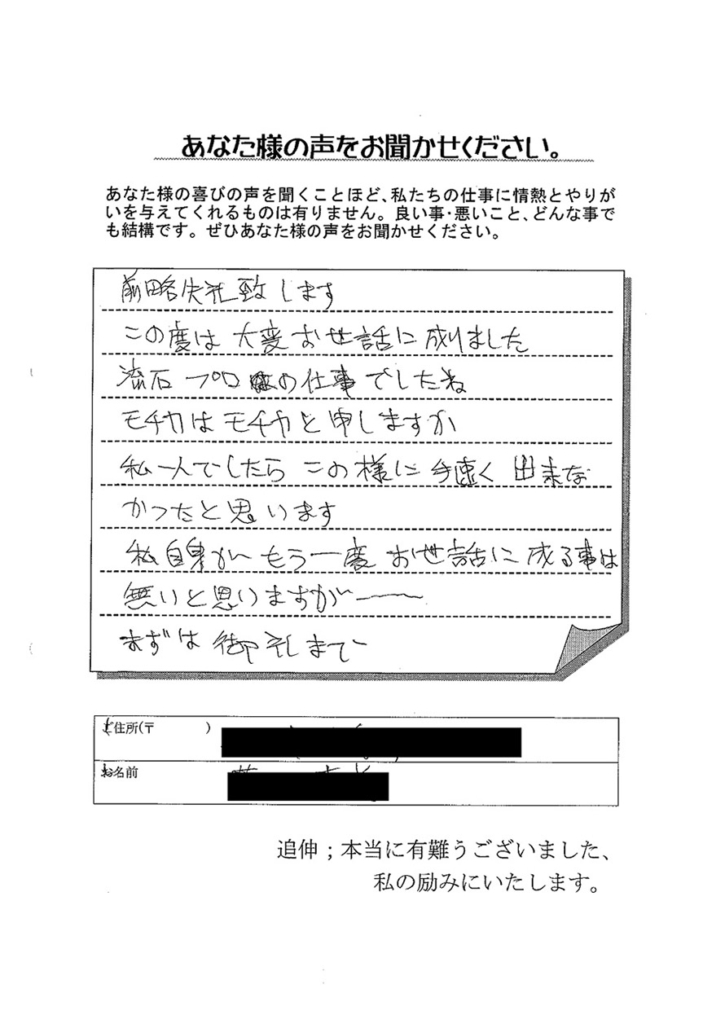 あなた様の声をお聞かせください。
あなた様の喜びの声を聞くことほど、私たちの仕事に情熱とやりが
いを与えてくれるものは有りません。良い事・悪いこと、どんな事で
も結構です。ぜひあなた様の声をお聞かせください。
前略失礼致します
この度は大変お世話に成りました
流石プロの仕事でしたね
モチカはモチヤと申しますか
私一人でしたらこの様に手速く出来な
かったと思います
私自身がもう一度お世話に成る事は
無いと思いますが――
まずは御礼まで
ご住所(〒 )
お名前
追伸;本当に有難うございました、
私の励みにいたします。